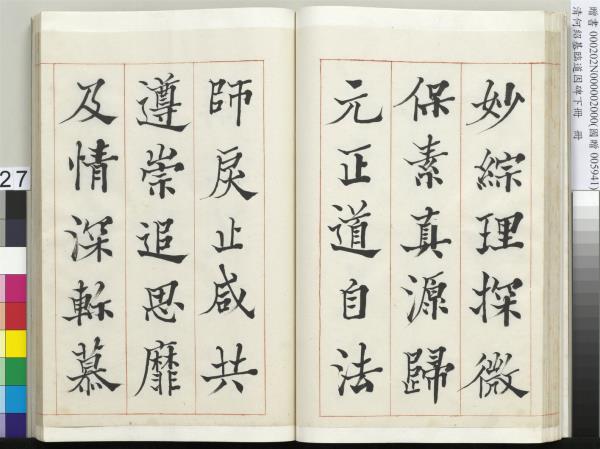 贈書 000202N000002000(國贈 005941)
清何紹基臨道因碑下冊 冊
妙綜理探微
保素真源歸
元正道自法
師戾止咸共
遵崇追思靡
及情深軫慕
27